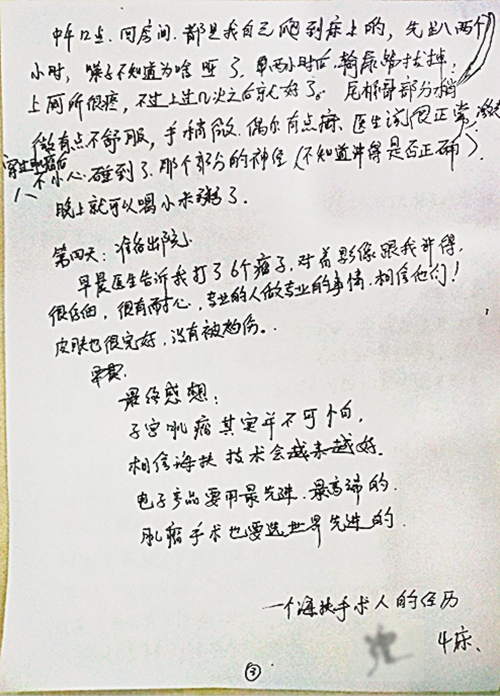 中午12点.回房间.都是我自己爬到床上的,先趴两个
小时,嗓子不知道为啥哑了.再两小时后输尿管拔掉:
上厕所很疼,不过上过几次之后就好了。尾椎骨部分稍
微有点不舒服,手稍微、偶尔有点麻.医生说很正常.
不小心碰到了.那个部分的神经(不知道讲得是否正确).
晚上就可以喝小米粥了.
第四天:准备出院.
早晨医生告诉我打了6个瘤子,对着影像跟我讲得.
很仔细,很有耐心,专业的人做专业的事情.相信他们!
皮肤也很完好,没有被灼伤。.
最终感想:
子宫肌瘤其实并不可怕,
相信海扶技术会越来越好.
电子产品要用最先进、最高端的.
肌瘤手术也要选世界先进的.
一个海扶手术人的经历
4床、
③